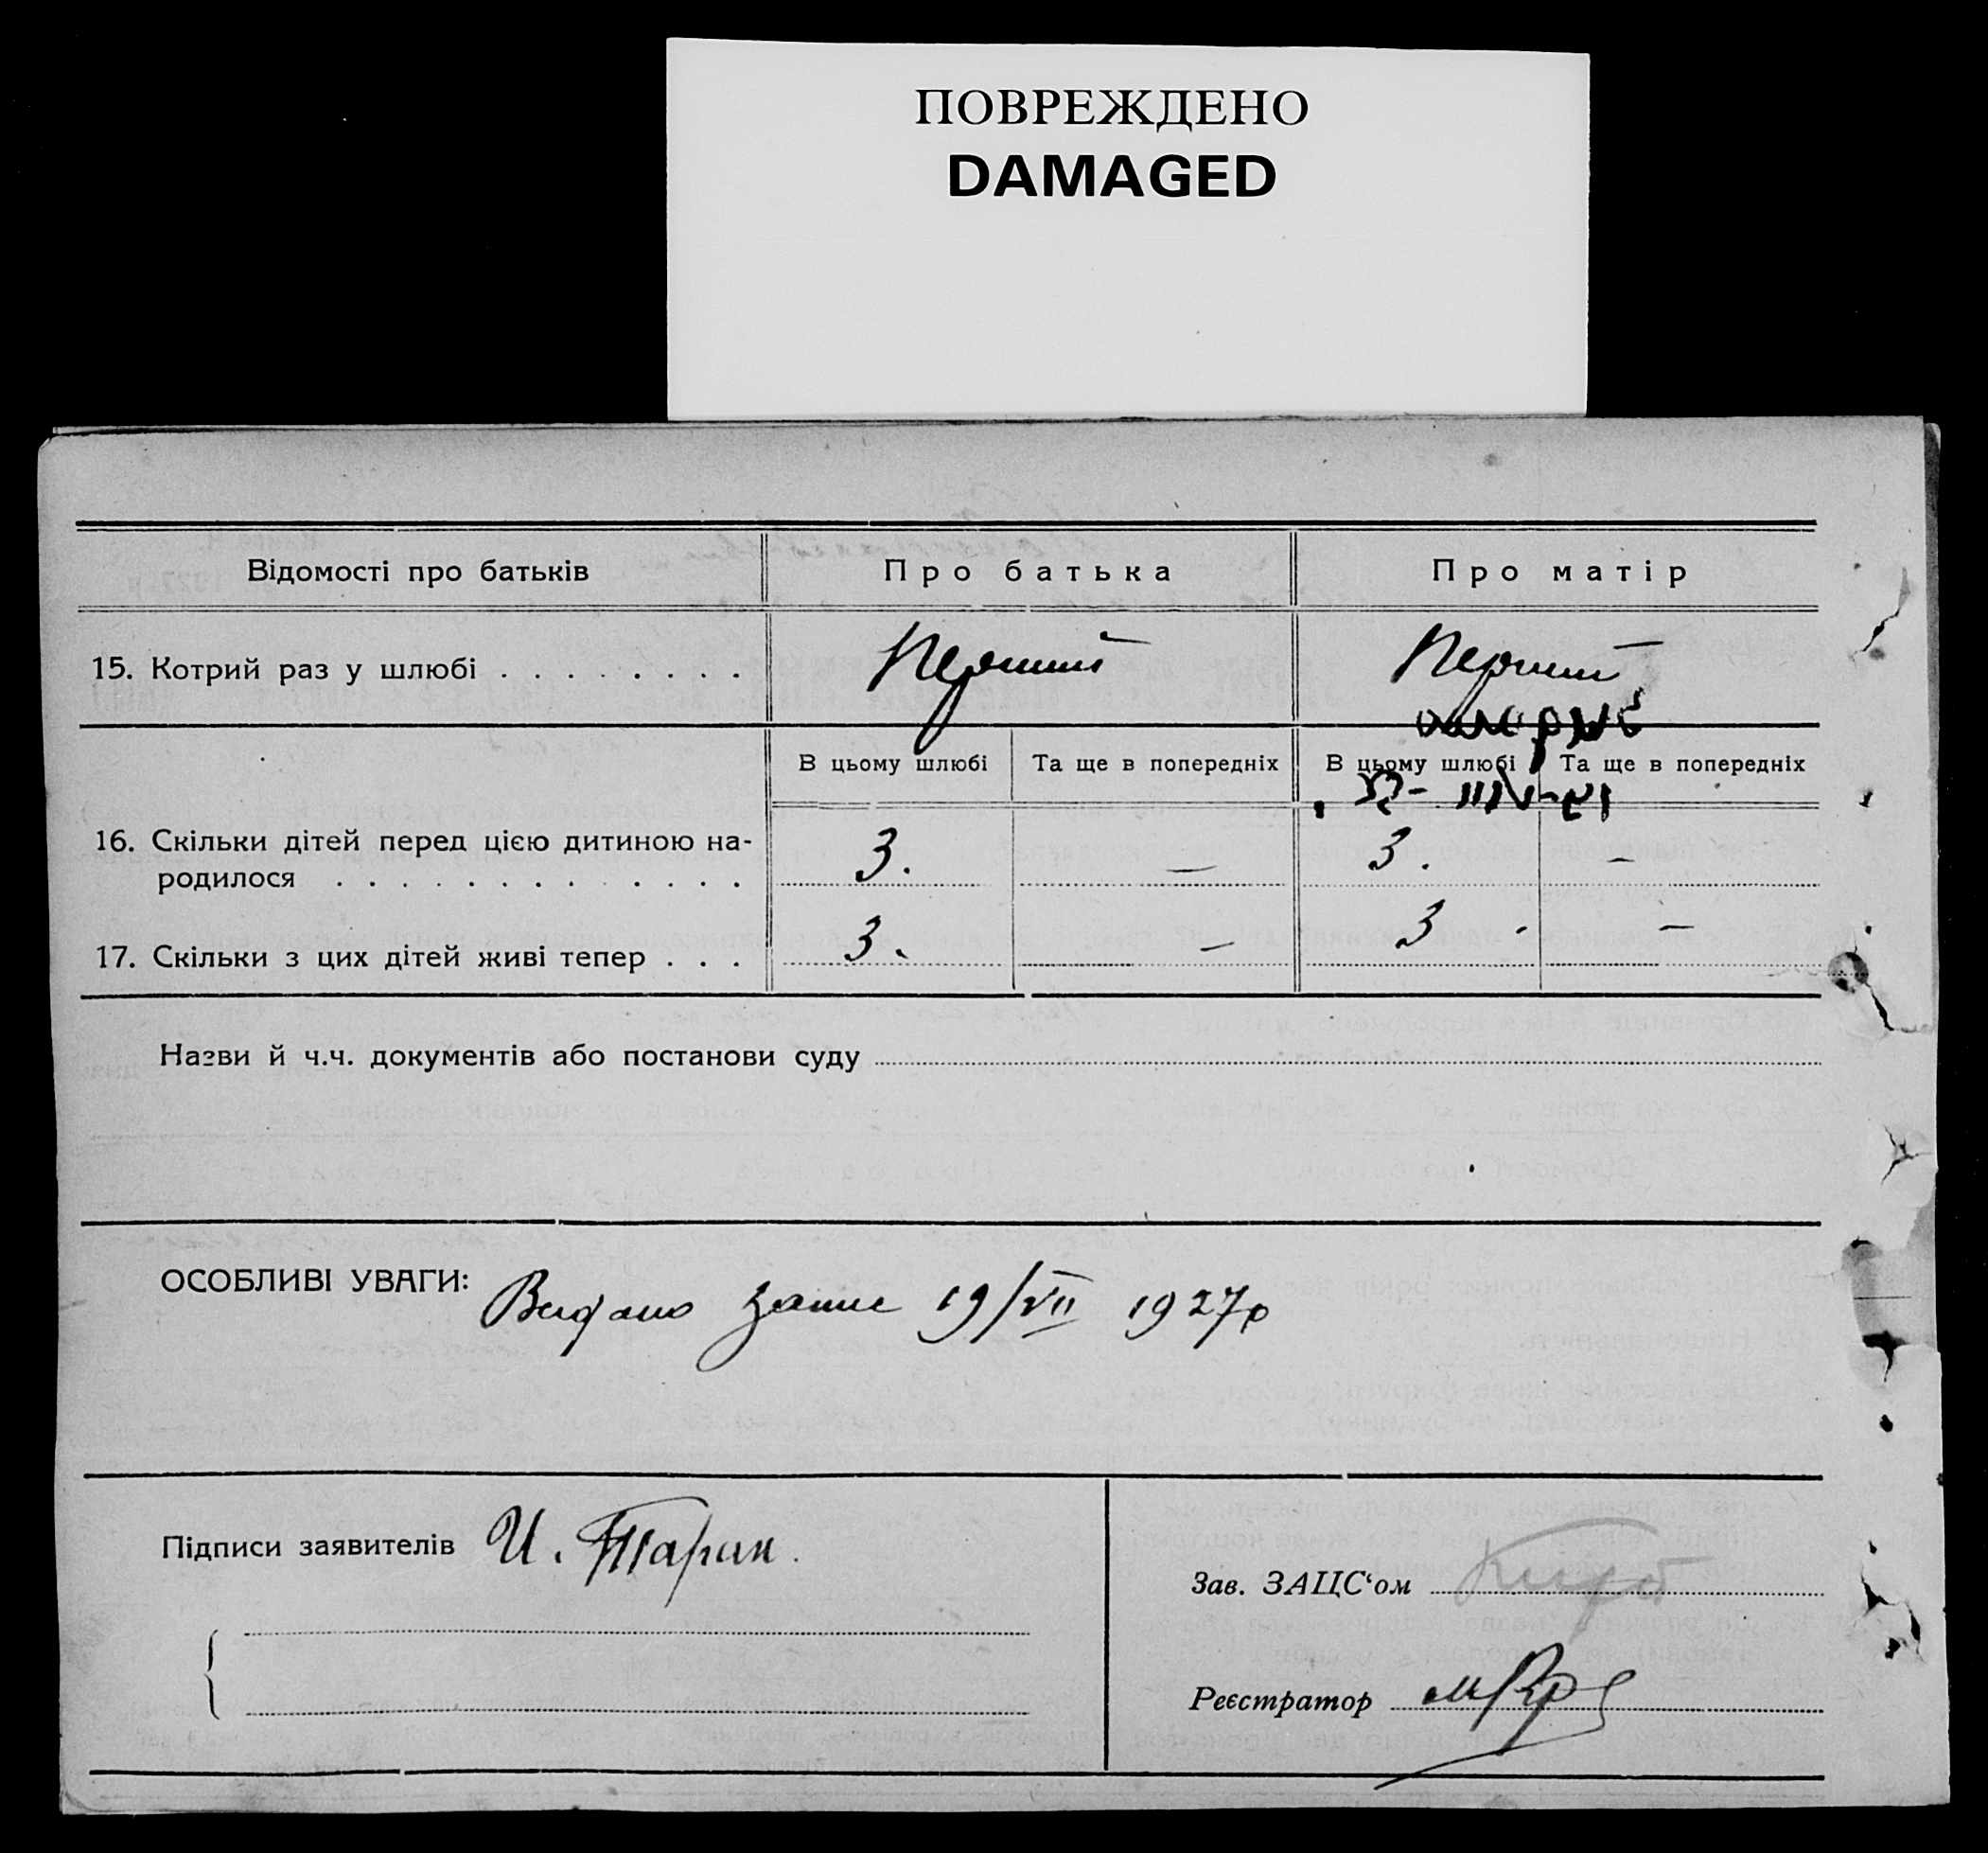 ПОВРЕЖДЕНО
DAMAGED
Відомості про батьків
Про батька
Про матір
15. Котрий раз у шлюбі . . . . . . . .
Перший
Перший
В цьому шлюбі
Та ще в попередніх
В цьому шлюбі
Та ще в попередніх
16. Скільки дітей перед цією дитиною на-
родилося . . . . . . . . . . . . . .
3.
—
3.
—
17. Скільки з цих дітей живі тепер . . .
3.
—
3
—
Назви й ч.ч. документів або постанови суду
ОСОБЛИВІ УВАГИ:
Видано запис 19/VII 1927р
Підписи заявителів
И. Таран.
Зав. ЗАЦС‘ом
Реєстратор